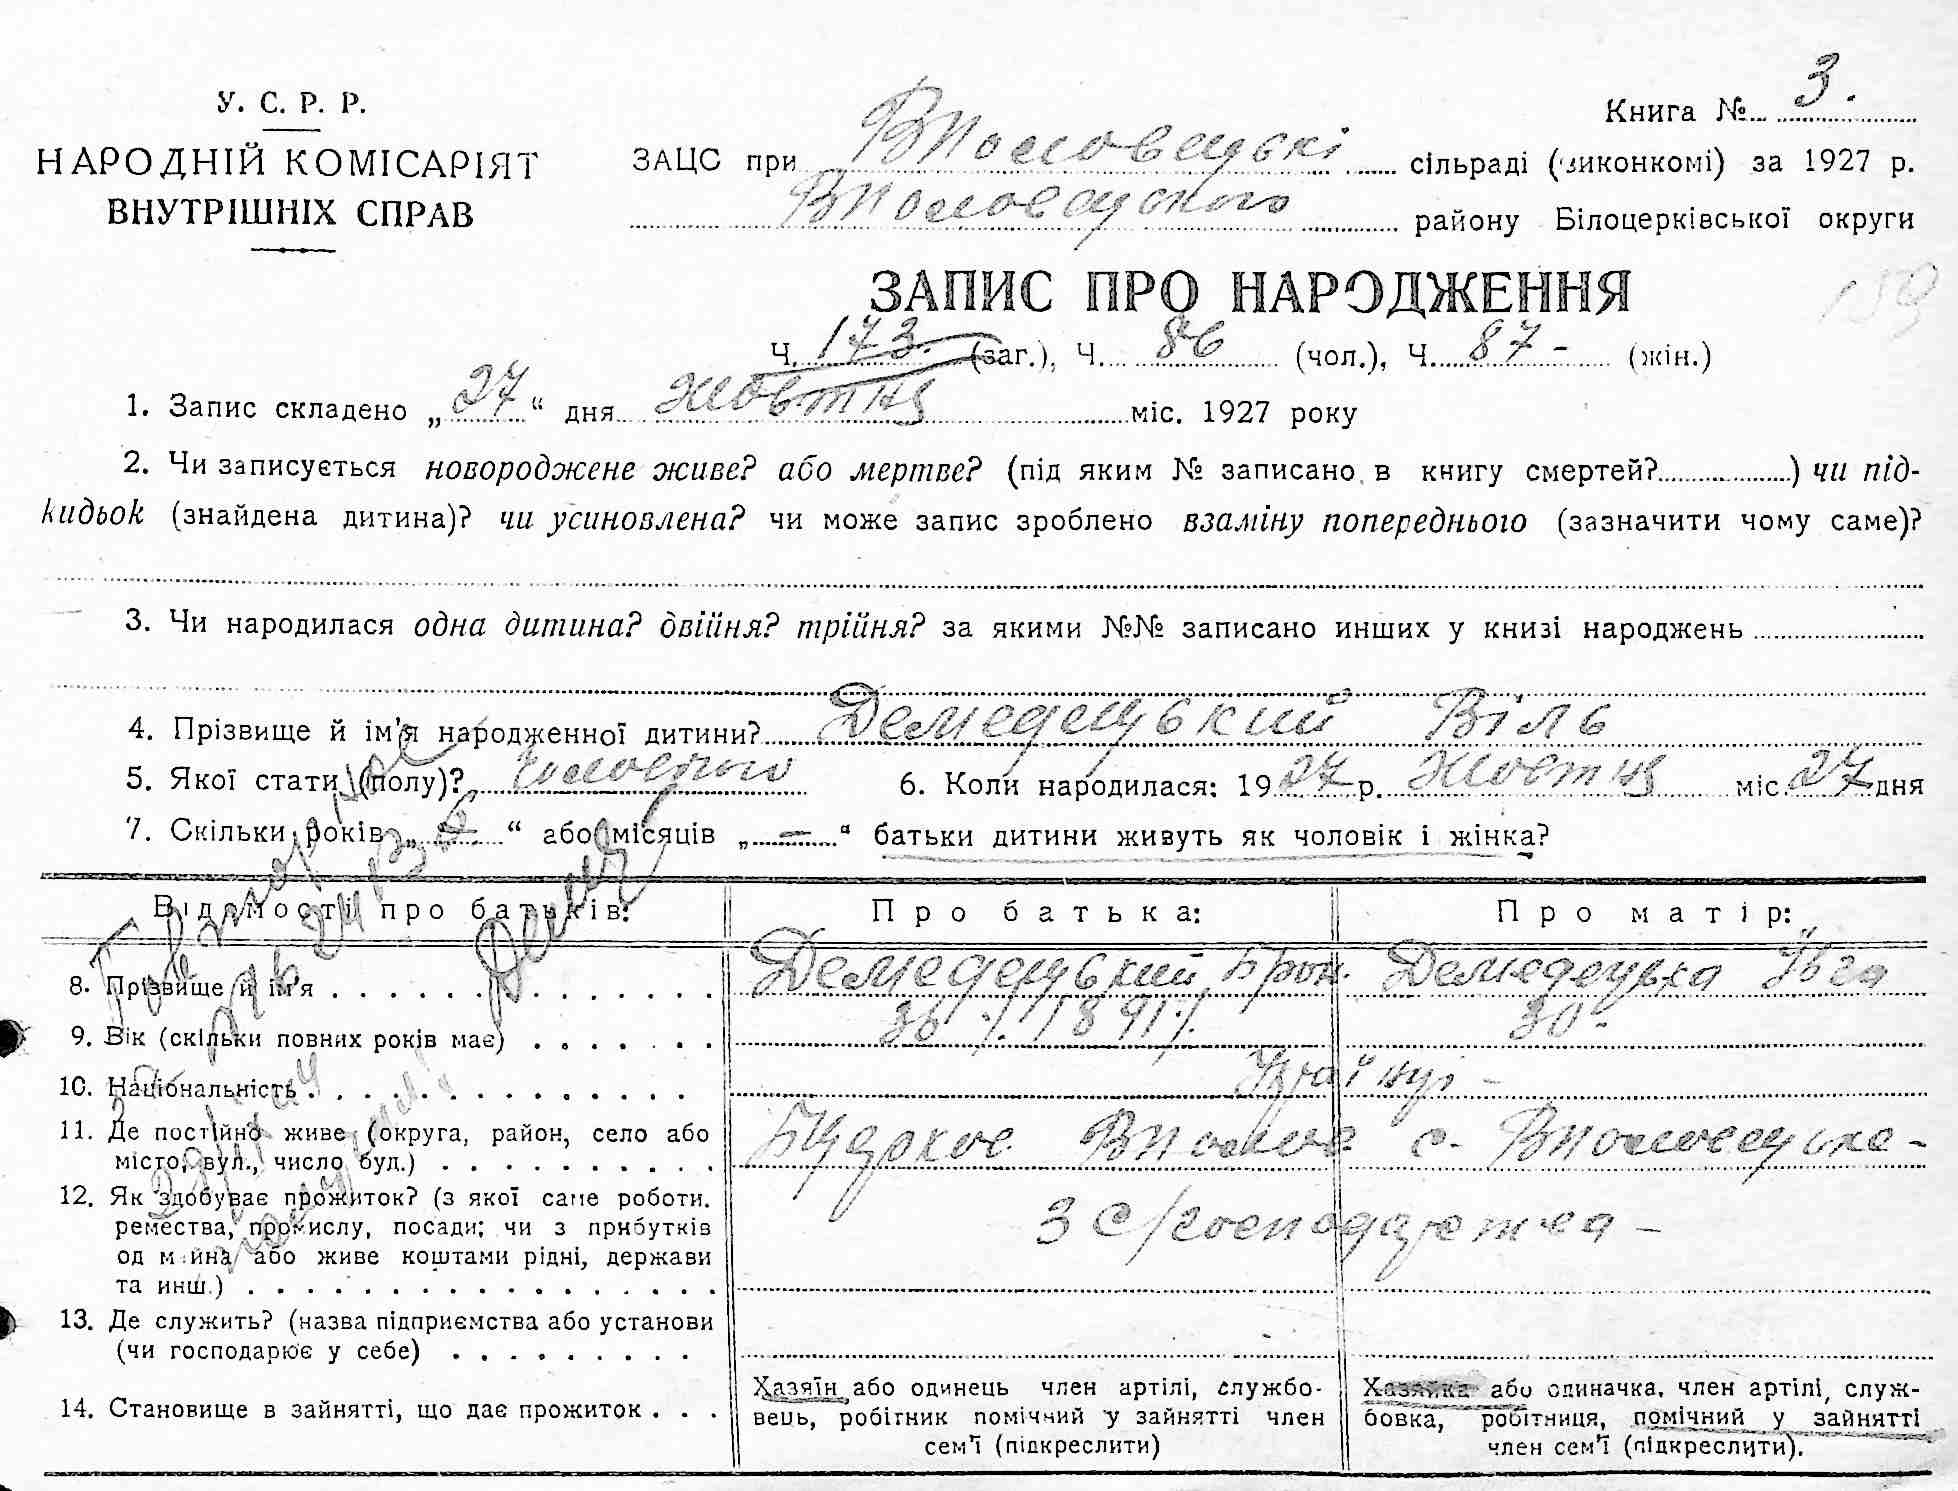 У. С. Р. Р.
НАРОДНІЙ КОМІСАРІЯТ
ВНУТРІШНІХ СПРАВ
Книга № 3.
ЗАЦС при Вполовецькі сільраді (виконкомі) за 1927 р.
Вполовецького району Білоцерківської округи
ЗАПИС ПРО НАРОДЖЕННЯ
159
Ч. 173. (заг.), Ч. 86 (чол.), Ч. 87 - (жін.)
1. Запис складено „27“ дня жовтня міс. 1927 року
2. Чи записується новороджене живе? або мертве? (під яким № записано в книгу смертей?) чи під-
кидьок (знайдена дитина)? чи усиновлена? чи може запис зроблено взаміну попереднього (зазначити чому саме)?
3. Чи народилася одна дитина? двійня? трійня? за якими №№ записано инших у книзі народжень
4. Прізвище й ім'я народженної дитини? Демедецький Віль
5. Якої стати (полу)? 6. Коли народилася: 1927 р. жовтня міс. 27 дня
7. Скільки років „6“ або місяців „—“ батьки дитини живуть як чоловік і жінка?
Відомості про батьків: Про батька: Про матір:
8. Прізвище й ім'я Демедецький Брон. Демедецька Ївга
9. Вік (скільки повних років має) 36 1891 30 -
10. Національність Українці -
11. Де постійно живе (округа, район, село або місто, вул., число буд.) Бцерков. Вполов. с. Вполовецьке -
12. Як здобуває прожиток? (з якої саме роботи. ремества, промислу, посади; чи з прибутків од майна або живе коштами рідні, держави та инш.) З с/господарства -
13. Де служить? (назва підприємства або установи (чи господарює у себе)
14. Становище в зайнятті, що дає прожиток
Хазяїн або одинець член артілі, службо-
вець, робітник помічний у зайнятті член
сем'ї (підкреслити)
Хазяйка або одиначка, член артілі, служ-
бовка, робітниця, помічний у зайнятті
член сем'ї (підкреслити).